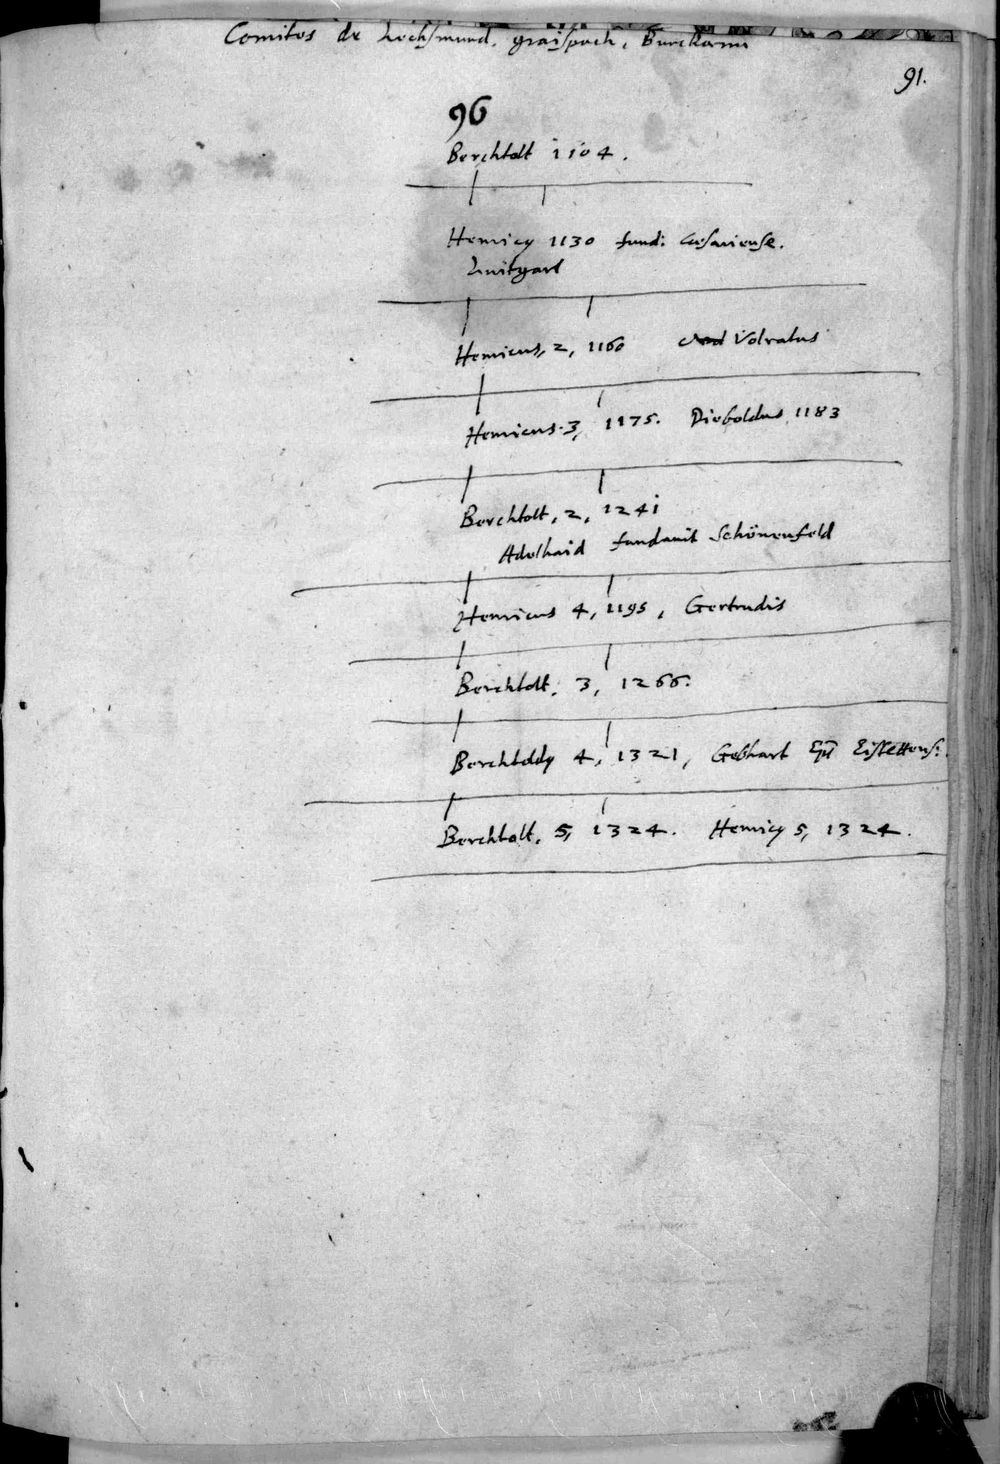 Comites de Lechsmund, graispach,
91.
96
Berchtolt 1104.
Henricꝰ 1130 fund: Cesariense.
Luitgart
Henricus, 2, 1160 Volratus
Henricus. 3, 1175. Dieboldus 1183
Berchtolt, 2, 1241
Adelhaid fundauit Schönenfeld
Henricus 4, 1195, Gertrudis
Berchtolt, 3, 1266.
Berchtoldꝰ 4, 1321, Gebhart Ep̄s Eistettens:
Berchtolt, 5, 1324. Henricꝰ 5, 1324.